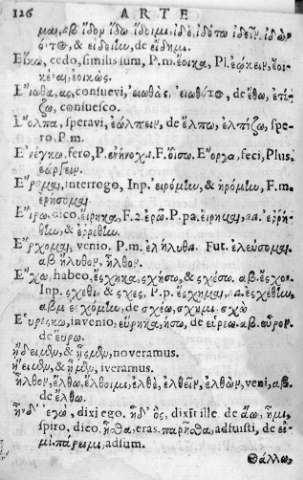 126 ARTE
μαι, αβ ἴδον ἴδω ἴδοιμι ἰδὲ ἰδέτω ἰδεῖν ἰδὼν
ότος, & εἰδείην, de εἴδημι.
Εἴκω, cedo, similis sum, P.m. ἔοικα, Pl. ἐῴκειν, ἔοι-
κέναι, ἐοικώς.
Εἴωθα, ας, consuevi, εἰωθὼς εἰωθότος, de ἔθω, ἐθί-
ζω, consuesco.
Ἔολπα, speravi, ἐώλπειν, de ἔλπω, ἐλπίζω, spe-
ro, P.m.
Ἐνέγκω, fero, P. ἐνήνοχα. F. οἴσω. Ἔοργα, feci, Plus.
ἐώργειν.
Ἔρομαι, interrogo, Inp. εἰρόμην, & ἠρόμην, F.m.
ἐρήσομαι
Ἔίρω, dico, εἴρηκα, F. 2. ἐρῶ. P. pa. εἴρημαι, αα. εἰρρή-
θην, & ἐρρέθην.
Ἔρχομαι, venio, P.m. ἐλήλυθα. Fut. ἐλεύσομαι.
αβ ἤλυθον, ἦλθον.
Ἔχω, habeo, ἔσχηκα, σχήσω, & σχέσω. αβ. ἔσχον.
Inp. σχέθι & σχὲς. P.p. ἔσχημαι, αα. ἐσχέθην,
αβμ ἐσχόμην, de σχέω, σχῆμι, σχῶ
Εὑρίσκω, invenio, εὕρηκα, ήσω, de εὑρέω. αβ. εὗρον.
de εὕρω.
ᾔδειμεν, & ᾖσμεν, noveramus.
ᾔειμεν, & ᾖμεν, iveramus.
ἦλθον, ἔλθω, ἔλθοιμι, ἐλθὲ, ἐλθεῖν, ἐλθὼν, veni, αβ.
de ἔλθω.
ἦνδ' ἐγὼ, dixi ego. ἦδ' ὃς, dixit ille. de ἄω, ἦμι,
spiro, dico. ἦσθα, eras. παρῆσθα, adfuisti, de εἰ-
μὶ. πάρειμι, adsum.
Θάλλω,